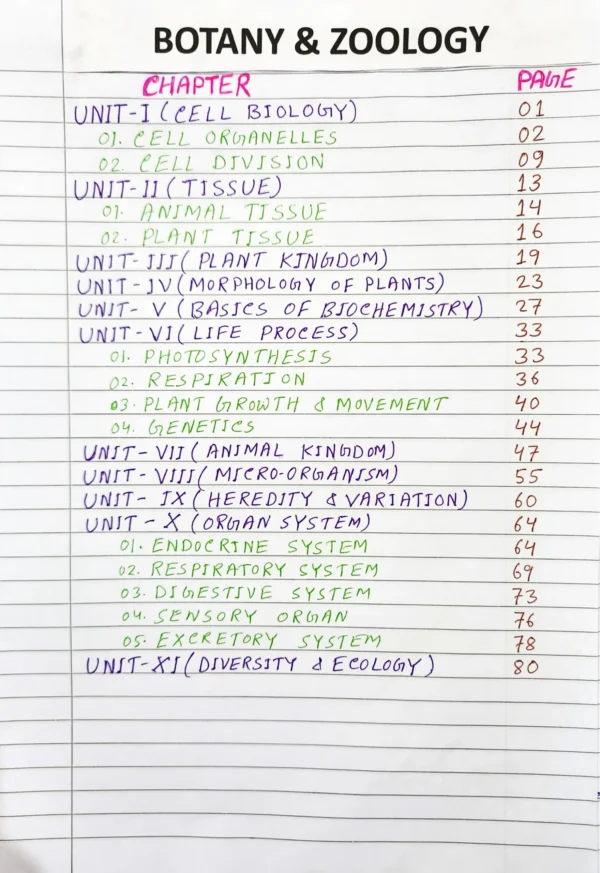 BOTANY & ZOOLOGY
CHAPTER PAGE
UNIT-I (CELL BIOLOGY) 01
01. CELL ORGANELLES 02
02. CELL DIVISION 09
UNIT-II (TISSUE) 13
01. ANIMAL TISSUE 14
02. PLANT TISSUE 16
UNIT-III (PLANT KINGDOM) 19
UNIT-IV (MORPHOLOGY OF PLANTS) 23
UNIT- V (BASICS OF BIOCHEMISTRY) 27
UNIT-VI (LIFE PROCESS) 33
01. PHOTOSYNTHESIS 33
02. RESPIRATION 36
03. PLANT GROWTH & MOVEMENT 40
04. GENETICS 44
UNIT- VII (ANIMAL KINGDOM) 47
UNIT- VIII (MICRO-ORGANISM) 55
UNIT- IX (HEREDITY & VARIATION) 60
UNIT - X (ORGAN SYSTEM) 64
01. ENDOCRINE SYSTEM 64
02. RESPIRATORY SYSTEM 69
03. DIGESTIVE SYSTEM 73
04. SENSORY ORGAN 76
05. EXCRETORY SYSTEM 78
UNIT-XI (DIVERSITY & ECOLOGY) 80